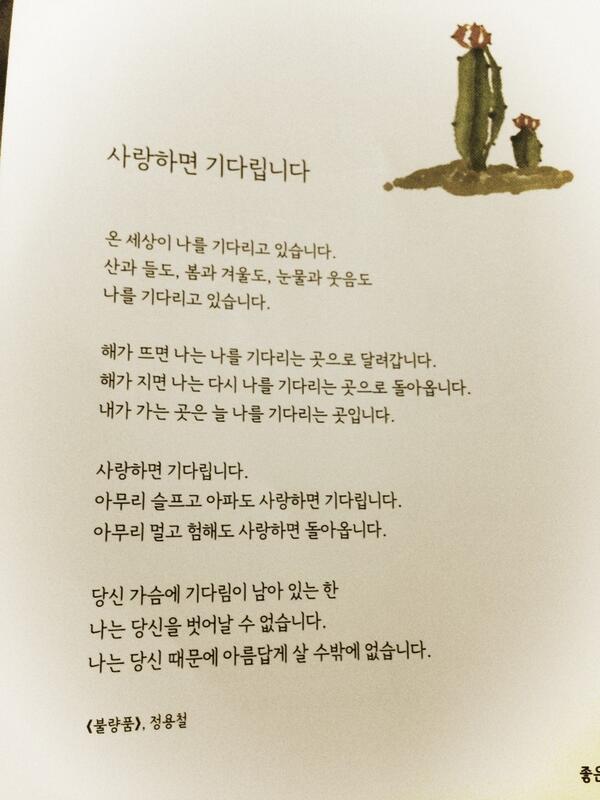 사랑하면 기다립니다
온 세상이 나를 기다리고 있습니다.
산과 들도, 봄과 겨울도, 눈물과 웃음도
나를 기다리고 있습니다.
해가 뜨면 나는 나를 기다리는 곳으로 달려갑니다.
해가 지면 나는 다시 나를 기다리는 곳으로 돌아옵니다.
내가 가는 곳은 늘 나를 기다리는 곳입니다.
사랑하면 기다립니다.
아무리 슬프고 아파도 사랑하면 기다립니다.
아무리 멀고 험해도 사랑하면 돌아옵니다.
당신 가슴에 기다림이 남아 있는 한
나는 당신을 벗어날 수 없습니다.
나는 당신 때문에 아름답게 살 수밖에 없습니다.
《불량품》, 정용철